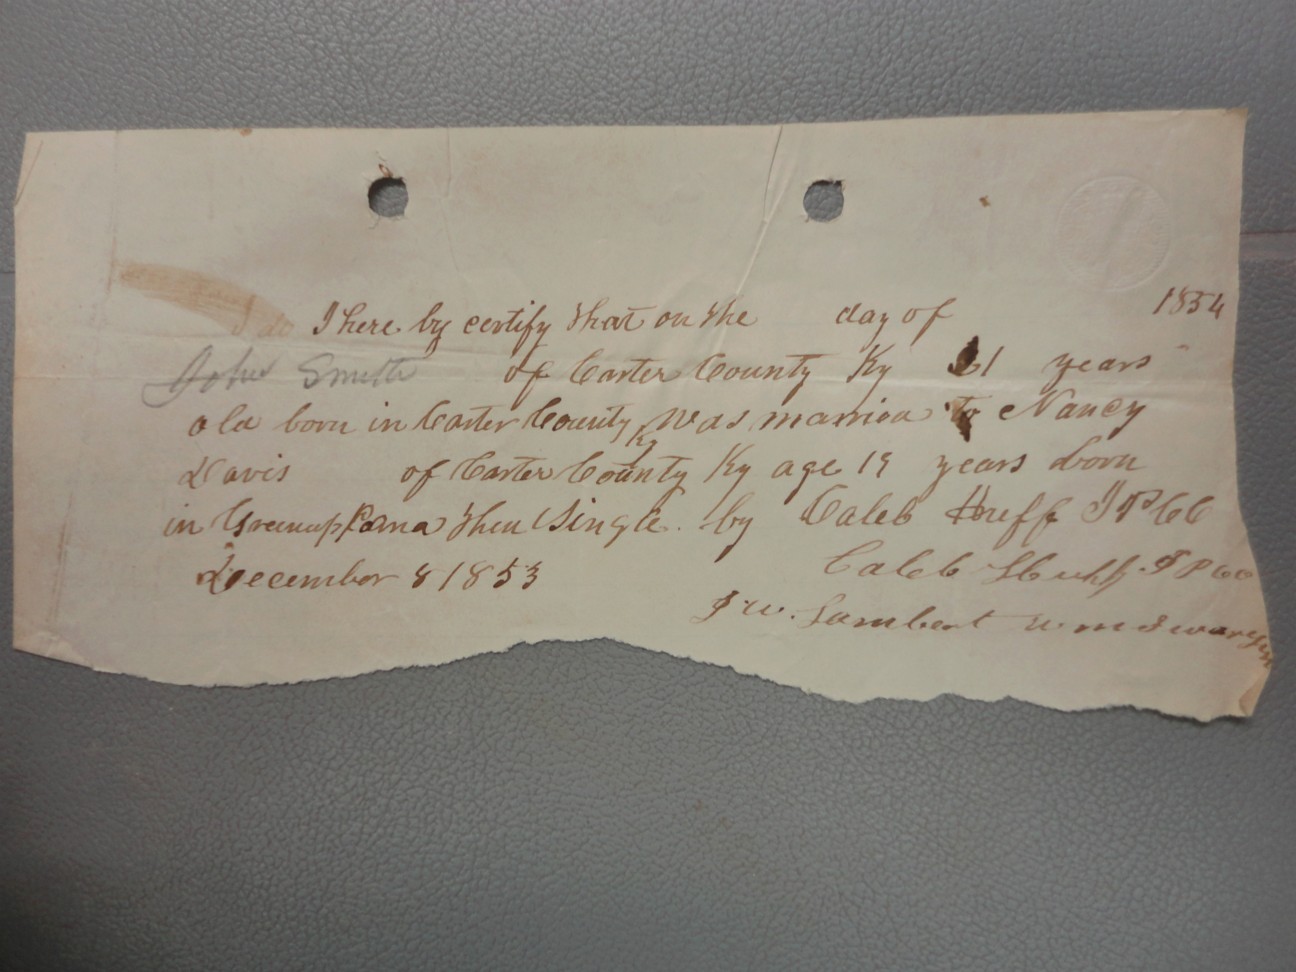 I here by certify that on the day of 1854
John Smith of Carter County Ky 21 years
old born in Carter County Ky was married to Nancy
Davis of Carter County Ky age 19 years born
in Greenup then Single by Caleb Huff JPCC
December 8 1853 Caleb Huff JPCC
J W. Lambert Wm